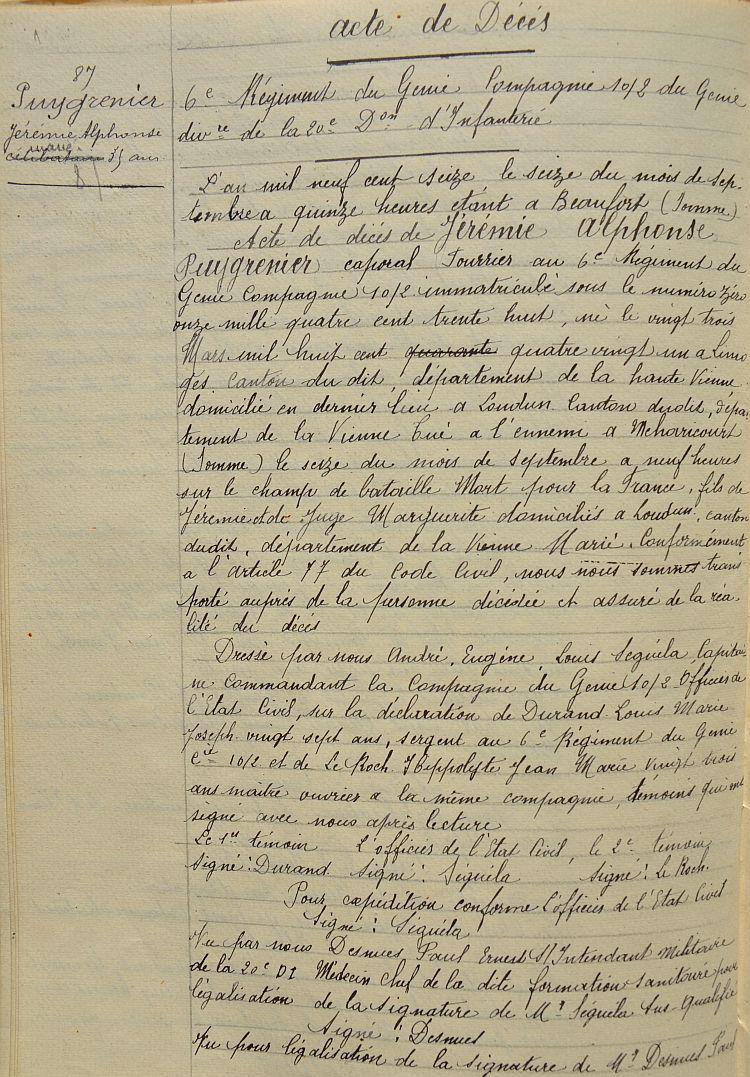 acte de Décés
87
Puygrenier
Jérémie Alphonse
marié
célibataire 35 ans
87
6e Régiment du Génie Compagnie 10/2 du Genie
divre de la 20e Don d'Infanterie
L'an mil neuf cent seize le seize du mois de Sep-
tembre a quinze heures etant a Beaufort (Somme)
Acte de décés de Jérémie Alphonse
Puygrenier caporal Fourrier au 6e Régiment du
Genie Compagnie 10/2 immatriculé sous le numéro zéro
onze mille quatre cent trente huit, né le vingt trois
Mars mil huit cent quarante quatre vingt un a Limo
ges canton du dit, département de la haute Vienne
domicilié en dernier lieu a Loudun Canton dudit, dépar-
tement de la Vienne Tué a l'ennemi a Meharicourt
(Somme) le seize du mois de Septembre a neuf heures
sur le champ de bataille Mort pour la France, fils de
Jérémie et de Juge Marguerite domiciliés a Loudun, canton
dudit, département de la Vienne Marié. Conformément
a l'article 77 du Code Civil, nous nous sommes trans
porté auprès de la personne décédée et assuré de la réa-
lité du décés
Dressé par nous André, Eugéne, Louis Seguéla, Capitai-
ne commandant la Compagnie du Genie 10/2 Officier de
l'Etat Civil, sur la déclaration de Durand Louis Marie
Joseph vingt sept ans, sergent au 6e Régiment du Genie
Cie 10/2 et de Le Roch Hippolyte Jean Marie Vingt trois
ans maitre ouvrier a la même compagnie, témoins qui ont
signé avec nous après lecture
Le 1er témoin L'officier de l'Etat Civil, le 2e témoin
Signé: Durand Signé: Seguéla Signé: Le Roch.
Pour expédition conforme l'officier de l'Etat Civil
Signé: Séguéla
Vu par nous Desnues Paul Ernest S/Intendant Militaire
de la 20e DI Médecin Chef de la dite formation sanitaire pour
légalisation de la signature de Mr Séguéla sus-qualifié
Signé: Desnues
Vu pour légalisation de la signature de Mr Desnues Paul